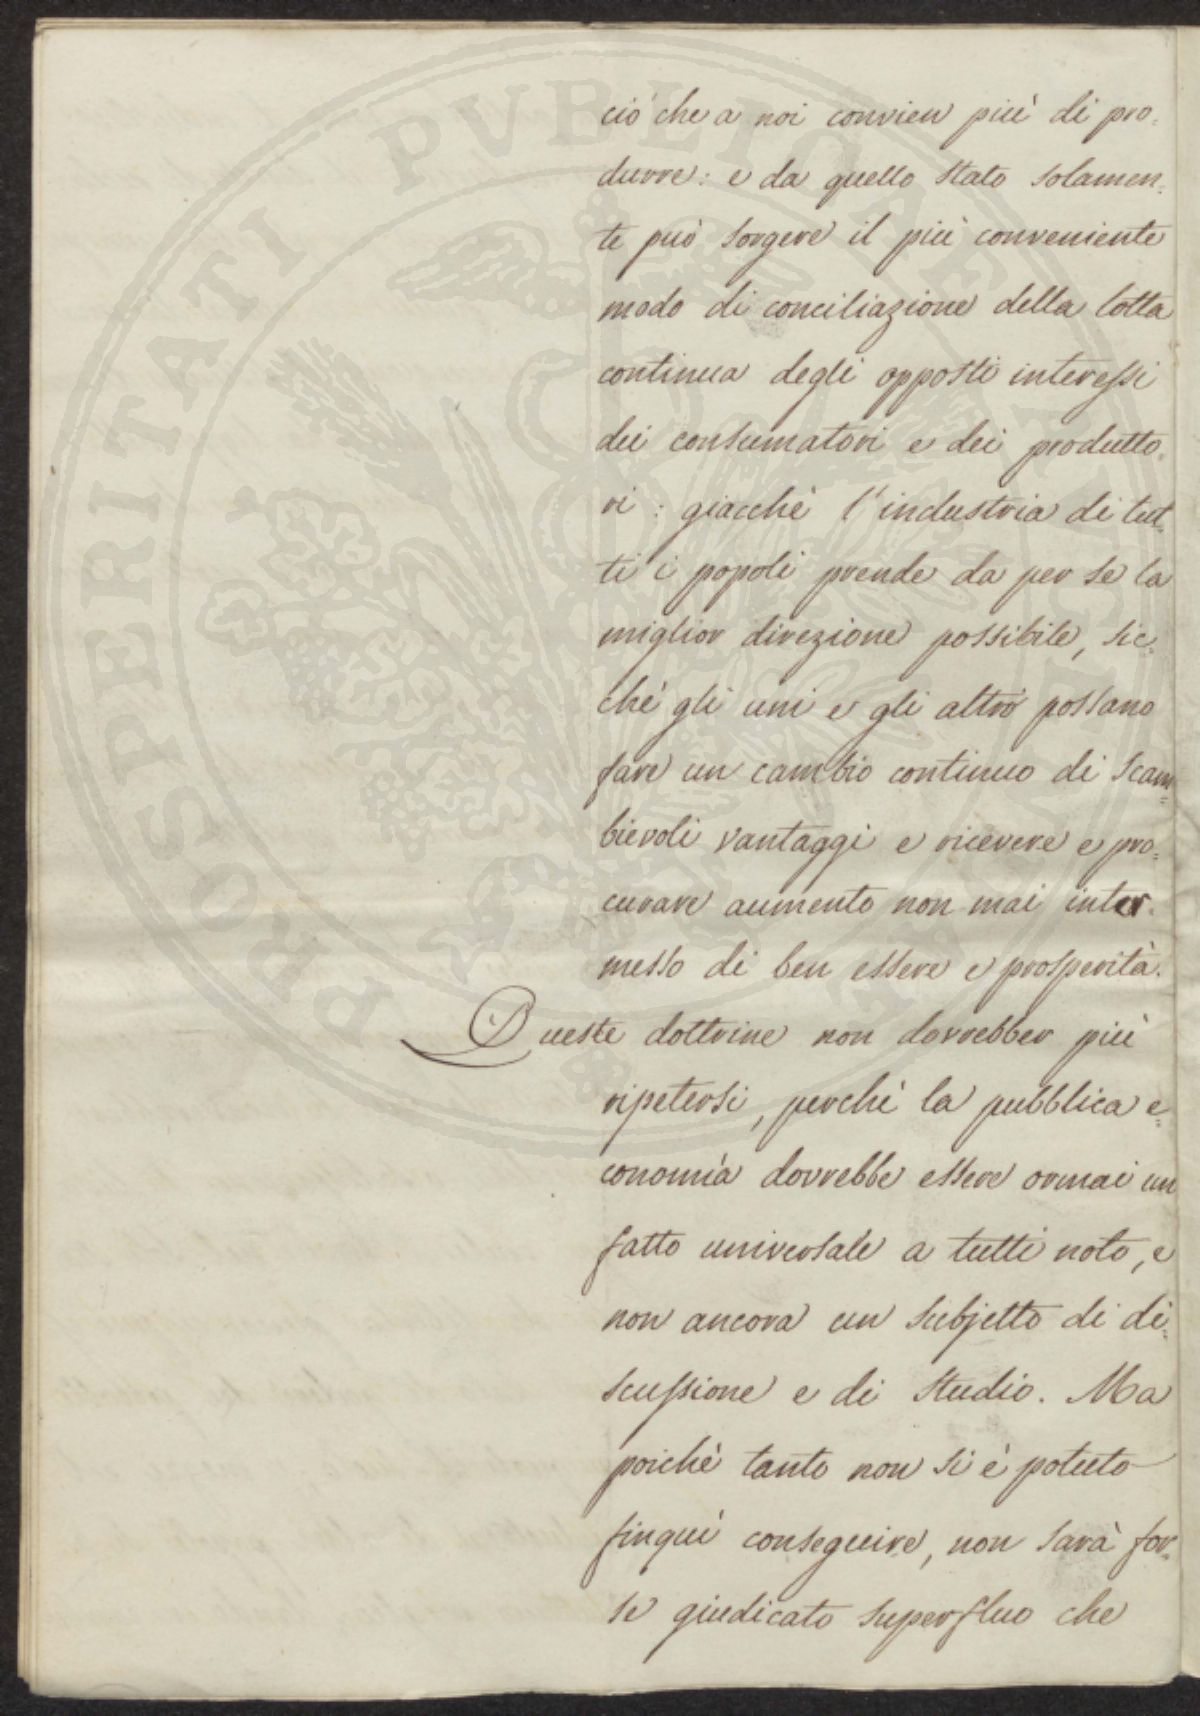 ciò che a noi convien più di pro=
durre: e da quello stato solamen=
te può sorgere il più conveniente
modo di conciliazione della lotta
continua degli opposti interessi
dei consumatori e dei produtto=
ri: giacchè l'industria di tut=
ti i popoli prende da per se la
miglior direzione possibile, sic=
chè gli uni e gli altri possano
fare un cambio continuo di scam=
bievoli vantaggi e ricevere e pro=
curare aumento non mai inter=
messo di ben essere e prosperità.
Queste dottrine non dovrebber più
ripetersi, perchè la pubblica e=
conomìa dovrebbe essere ormai un
fatto universale a tutti noto, e
non ancora un subjetto di di=
scussione e di studio. Ma
poichè tanto non si è potuto
finquì conseguire, non sarà for=
se giudicato superfluo che
PROSPERITATI PVBLICAE